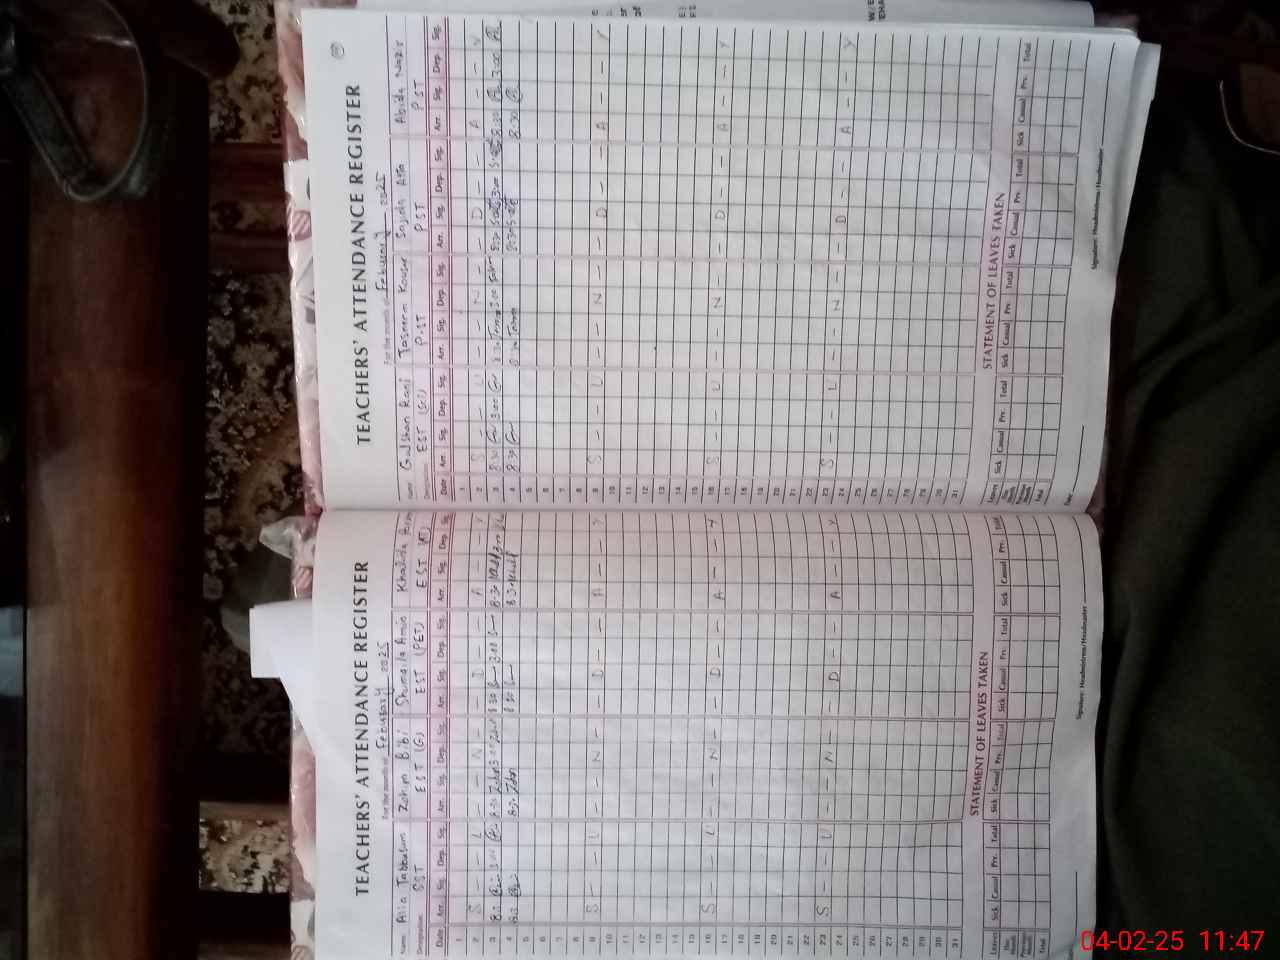 TEACHERS' ATTENDANCE REGISTER
For the month of Feburary 2025
Name Alia Tabbasum Zahipn Bibi Shumaila Amin Khalida
Designation SST EST (G) EST (PET) EST
Date Arr. Sig. Dep. Sig. Arr. Sig. Dep. Sig. Arr. Sig. Dep. Sig. Arr. Sig. Dep. Sig.
1
2 S - - U - - - N - - D - - A - - Y
3 8:30 3:00 8:30 3:00 8:30 3:00 8:30 3:00
4 8:30 8:30 8:30
5
6
7
8
9 S - - U - - N - - D - - A - - Y
10
11
12
13
14
15
16 S - - U - - N - - D - - A - - Y
17
18
19
20
21
22
23 S - - U - - N - - D - - A - - Y
24
25
26
27
28
29
30
31
STATEMENT OF LEAVES TAKEN
Leaves Sick Casual Prv. Total Sick Casual Prv. Total Sick Casual Prv. Total Sick Casual Prv. Total
Total
Signature: Headmistress/Headmaster
TEACHERS' ATTENDANCE REGISTER
For the month of Feburary 2025
Name Gulshan Rani Tasneem Kousar Sajida Atta Abida Nazir
Designation EST (Sci) P.ST PST PST
Date Arr. Sig. Dep. Sig. Arr. Sig. Dep. Sig. Arr. Sig. Dep. Sig. Arr. Sig. Dep. Sig.
1
2 S - - U - - N - - D - - A - - Y
3 8:30 3:00 8:30 3:00 8:30 3:00 8:30 3:00
4 8:30 8:30 8:30 8:30
5
6
7
8
9 S - - U - - N - - D - - A - - Y
10
11
12
13
14
15
16 S - - U - - N - - D - - A - - Y
17
18
19
20
21
22
23 S - - U - - N - - D - - A - - Y
24
25
26
27
28
29
30
31
STATEMENT OF LEAVES TAKEN
Leaves Sick Casual Prv. Total Sick Casual Prv. Total Sick Casual Prv. Total Sick Casual Prv. Total
Total
Date
Signature: Headmistress/Headmaster
04-02-25 11:47